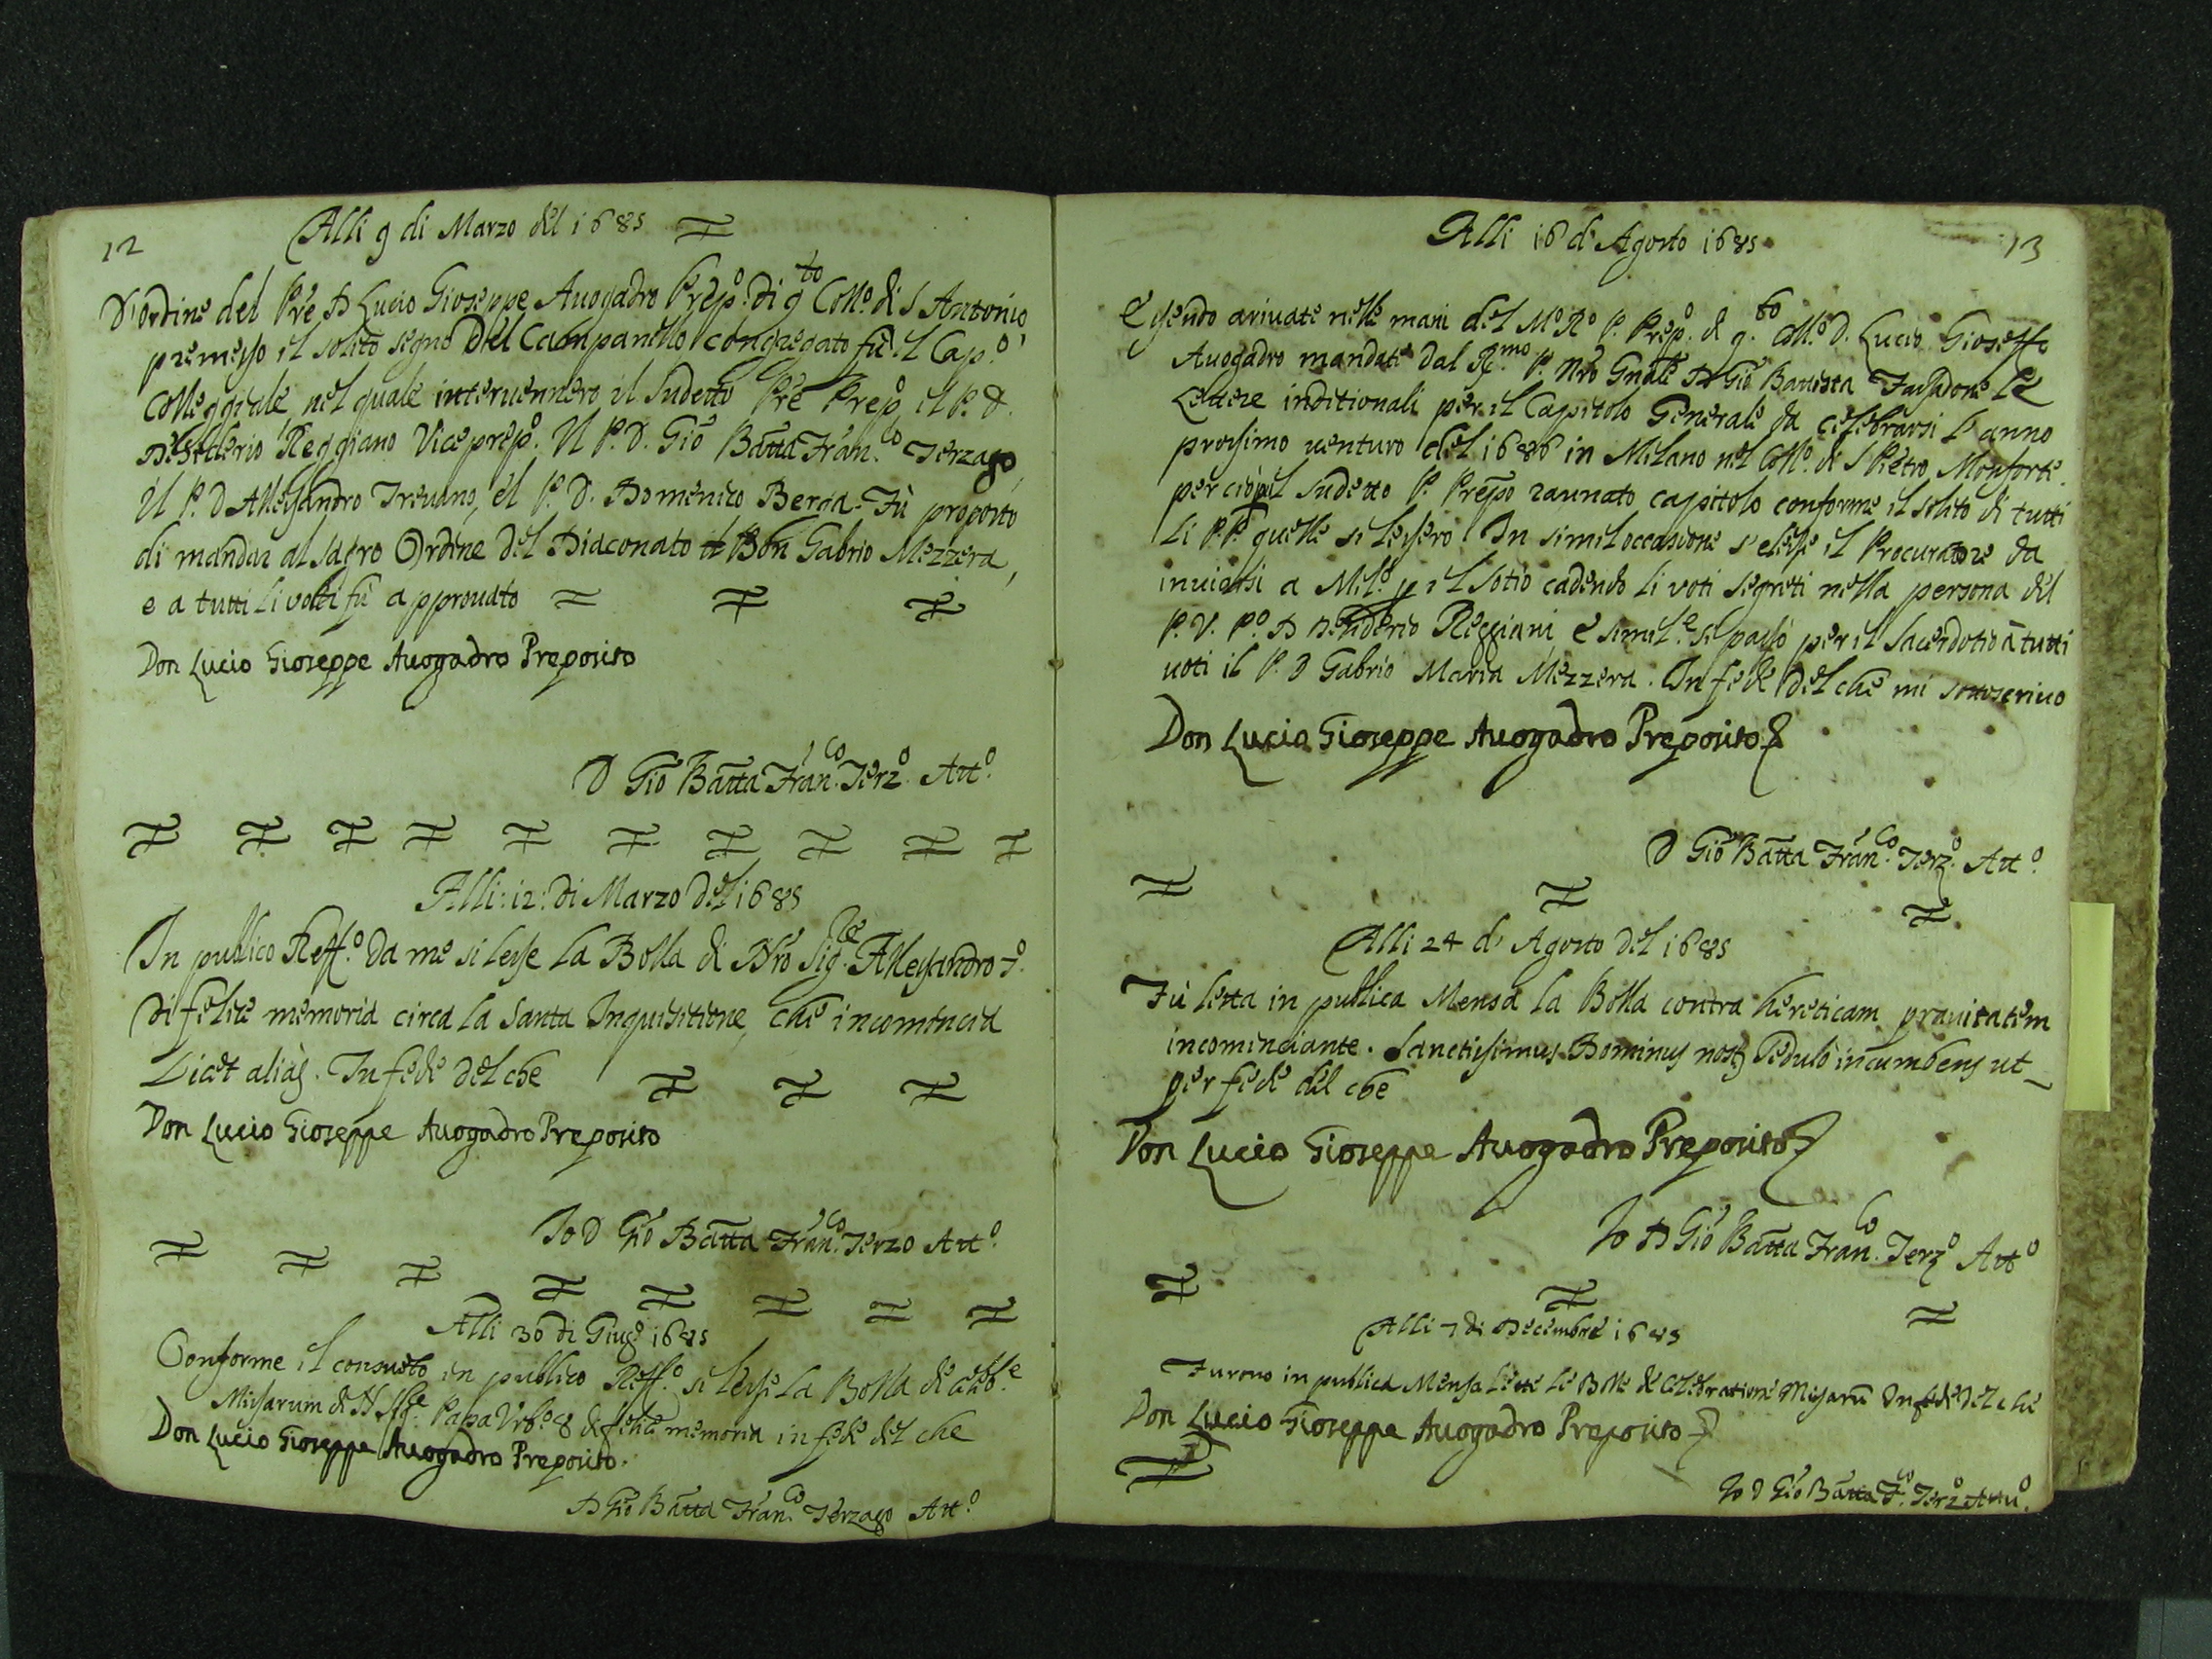 12
Alli 9 di Marzo del 1685
D'ordine del Pre D Lucio Gioseppe Auogadro Prepo. di q.to Collo. di S Antonio
premesso il solito segno del Campanello congregato fù il Cap.o
Colleggiale, nel quale interuennero il Sudetto Pre Prepo, il P. D.
Desiderio Reggiano Viceprepo. Il P. D. Gio Batta Fran.co Terzago,
Il P. D Allessandro Treuano, el P. D. Domenico Berga. Fù proposto
di mandar al Sagro Ordine del Diaconato il Don Gabrio Mezzera,
e a tutti li voti fù approuato
Don Lucio Gioseppe Auogadro Preposito
D Gio Batta Fran.co Terz.o Att.o
Alli: 12: di Marzo del 1685
In publico Reff.o da me si lesse la Bolla di Nro Sig.re Allessandro 7.o
di felice memoria circa la Santa Inquisitione, che incomincia
Licet aliàs. In fede del che
Don Lucio Gioseppe Auogadro Preposito
Io D Gio Batta Fran.co Terzo Att.o
Alli 30 di Giug.o 1685
Conforme il consueto in publico Reff.o si lesse la Bolla de celeb.e
Missarum di N. Sig.re Papa Vrb.o 8 di felice memoria in fede del che
Don Lucio Gioseppe Auogadro Preposito.
D Gio Batta Fran.co Terzago Att.o
13
Alli 16 di Agosto 1685
Essendo ariuate nelle mani del M.o R.o P. Prep.o di q.to Coll.o D. Lucio Gioseffo
Auogadro mandate dal R.mo P. Nro Gnale D Gio Battista le
Lettere inditionali per il Capitolo Generale da celebrarsi l'anno
prossimo uenturo del 1686 in Milano nel Coll.o di S Pietro Monforte.
perciò il sudetto P. Prepo raunato capitolo conforme il solito di tutti
li PP. quelle si lessero. In simil occasione s'elesse il Procuratore da
inuiarsi a Mil.o p il Sotio cadendo li voti segreti nella persona del
P. V. P.o D Desiderio Reggiani e simil.e si passò per il Sacerdotio à tutti
uoti il P. D Gabrio Maria Mezzera. In fede del che mi sottoscriuo
Don Lucio Gioseppe Auogadro Preposito
D Gio Batta Fran.co Terz.o Att.o
Alli 24 di Agosto del 1685
Fù letta in publica Mensa la Bolla contra hereticam prauitatem
incominciante. Sanctissimus Dominus nost Sedulo incumbens ut
per fede del che
Don Lucio Gioseppe Auogadro Preposito
Io D Gio Batta Fran.co Terz.o Att.o
Alli 7 di Decembre 1685
Furono in publica Mensa lette le Bolle de Celebratione Missarū In fede del che
Don Lucio Gioseppe Auogadro Preposito
Io D Gio Batta F.co Terz.o Attu.o